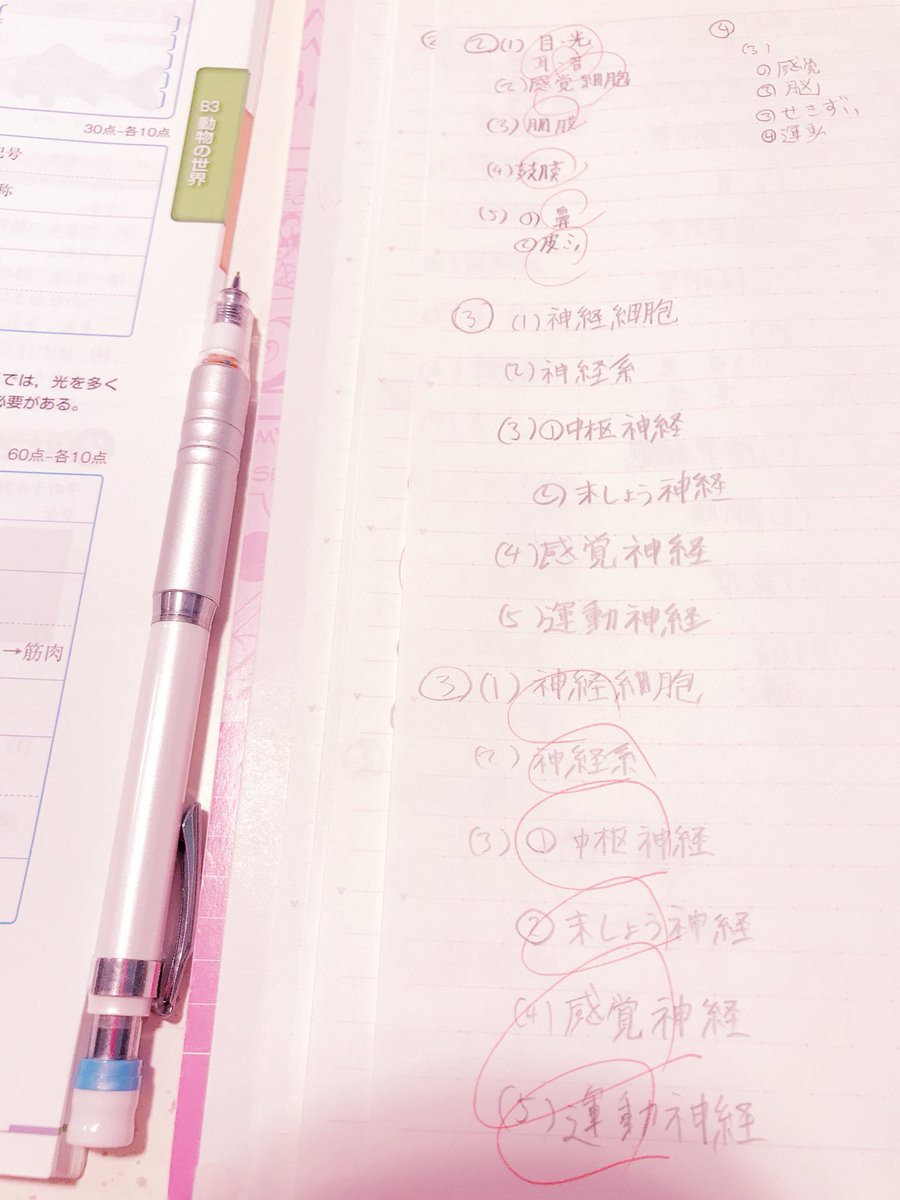 30点–各10点
B3 動物の世界
記号
称
では，光を多く
必要がある。
60点–各10点
→筋肉
② (1) 目-光
耳-音
(2) 感覚細胞
(3) 網膜
(4) 鼓膜
(5) ① 鼻
② 皮ふ
③ (1) 神経細胞
(2) 神経系
(3) ① 中枢神経
② 末しょう神経
(4) 感覚神経
(5) 運動神経
③ (1) 神経細胞
(2) 神経系
(3) ① 中枢神経
② 末しょう神経
(4) 感覚神経
(5) 運動神経
④
(3)
① 感覚
② 脳
③ せきずい
④ 運動